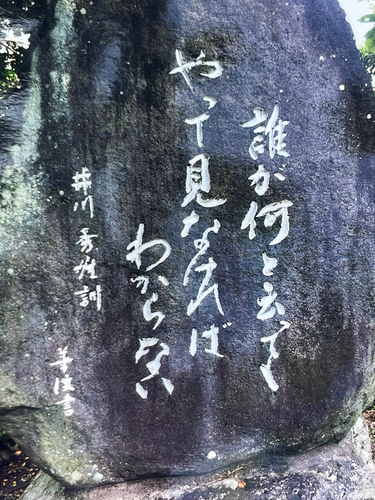 誰が何と云ても
やって見なければ
わからない
井川秀雄訓
書